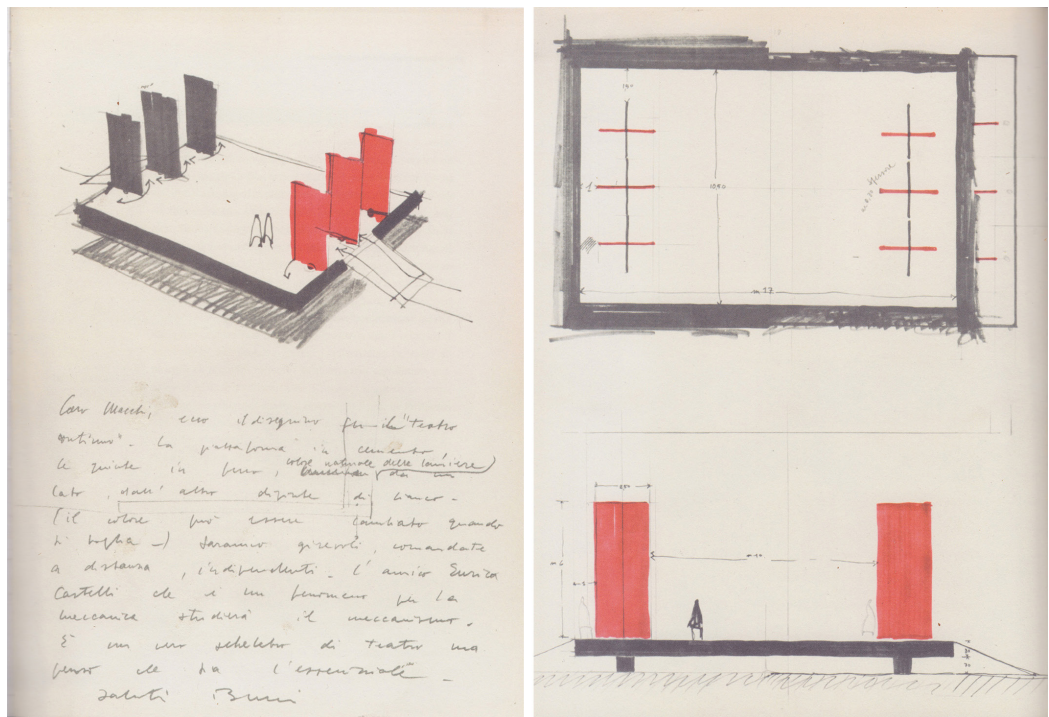 Caro Macchi, ecco il disegnino per il "Teatro
continuo". La piattaforma in cemento,
le quinte in ferro, colore naturale delle lamiere, da un
lato, dall'altro dipinte di bianco -
(il colore può essere cambiato quando
si voglia -) saranno girevoli, comandate
a distanza, indipendenti. L'amico Enrico
Castelli che è un fenomeno per la
meccanica studierà il meccanismo.
È un vero scheletro di Teatro ma
penso che ha l'essenziale" -
saluti Burri
10,50
m 17
m 0,50 spessore
2,50
m 10
m 6